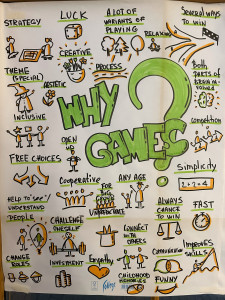 STRATEGY
LUCK
A LOT OF
VARIANTS OF
PLAYING
SEVERAL WAYS
TO WIN
RELAXING
CREATIVE
THEME
(SPECIAL)
PROCESS
BOTH
PARTS OF
BRAIN
INCLUSIVE
WHY
GAMES
?
competition
OPEN
FREE CHOICES
Cooperative
FOR
ANY AGE
Simplicity
HELP TO "SEE"/
UNDERSTAND
PEOPLE
CHALLENGE
ONESELF
CONNECT
WITH
OTHERS
ALWAYS
CHANCE
TO WIN
FAST
CHANGE
ROLES
INVESTMENT
Empathy
CHILDHOOD
MEMORIES
Communication
FUNNY
IMPROVES
SKILLS